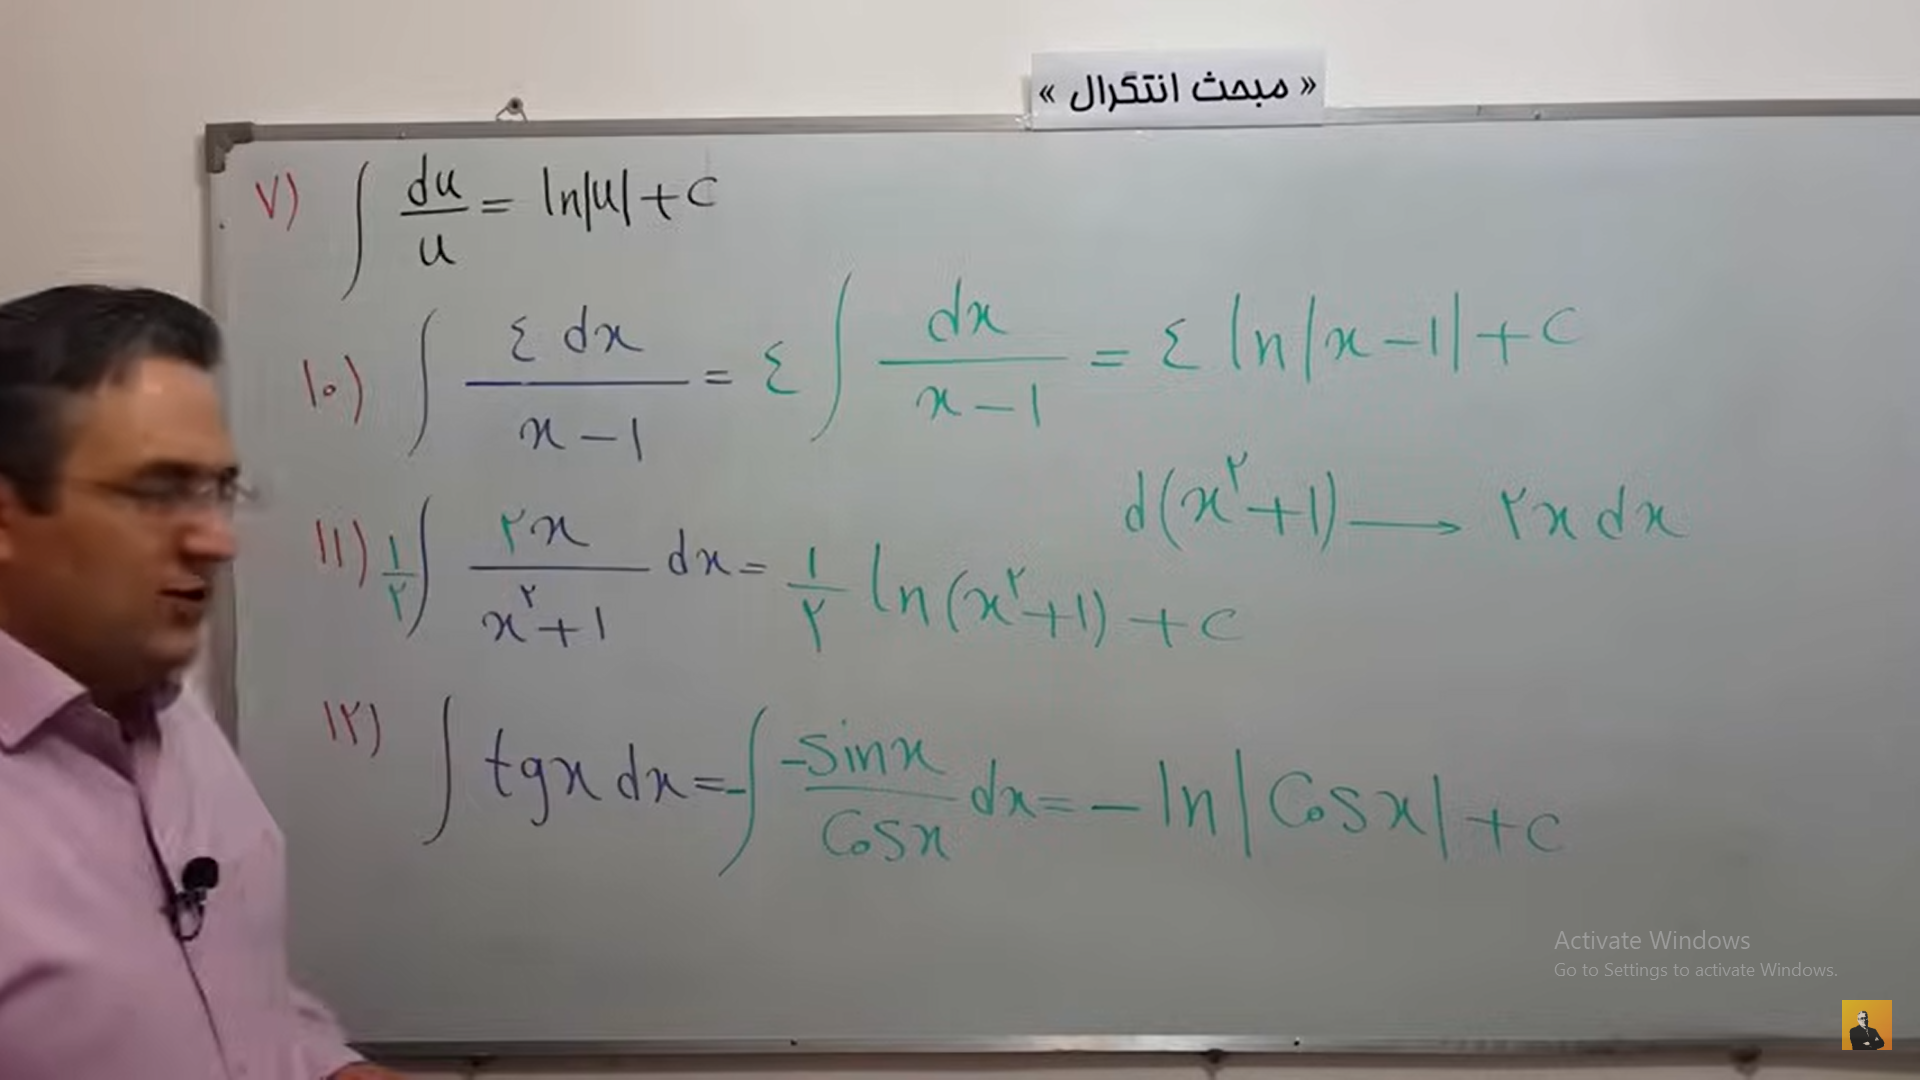 « مبحث انتگرال »
۷) ∫ du/u = ln|u| + c
۱۰) ∫ ٤ dx / x - ۱ = ٤ ∫ dx / x - ۱ = ٤ ln|x - ۱| + c
d(x^۲ + ۱) → ۲x dx
۱۱) ۱/۲ ∫ ۲x / x^۲ + ۱ dx = ۱/۲ ln(x^۲ + ۱) + c
۱۲) ∫ tgx dx = - ∫ -Sinx / Cosx dx = - ln|Cosx| + c
Activate Windows
Go to Settings to activate Windows.